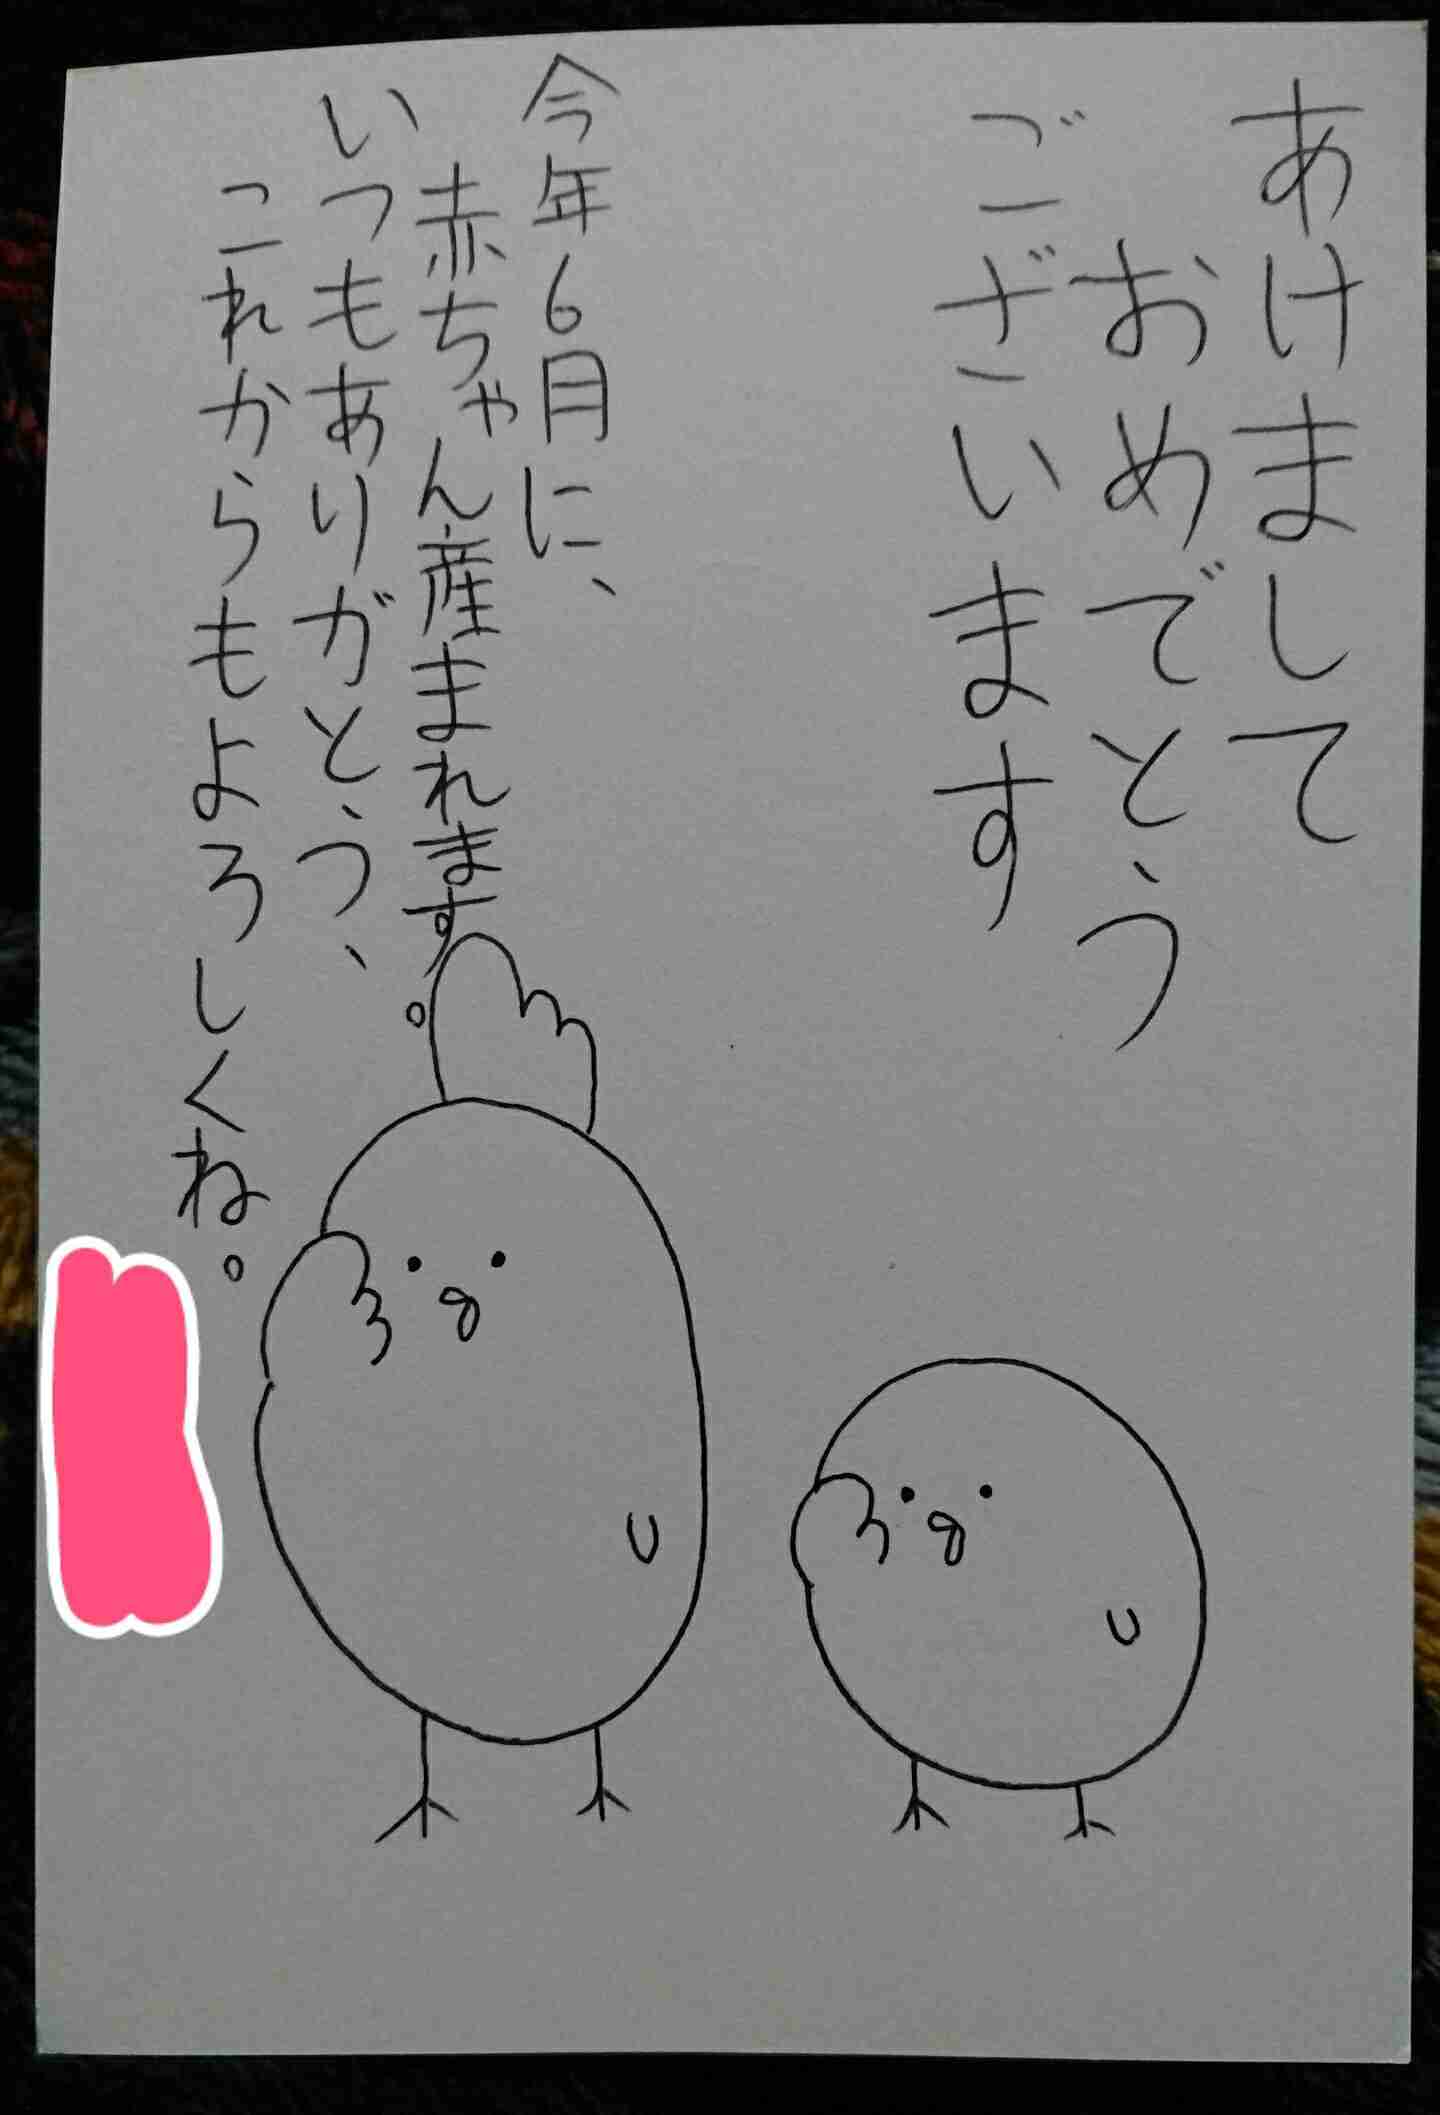 あけまして
おめでとう
ございます
今年6月に、
赤ちゃん産まれます。
いつもありがとう、
これからもよろしくね。